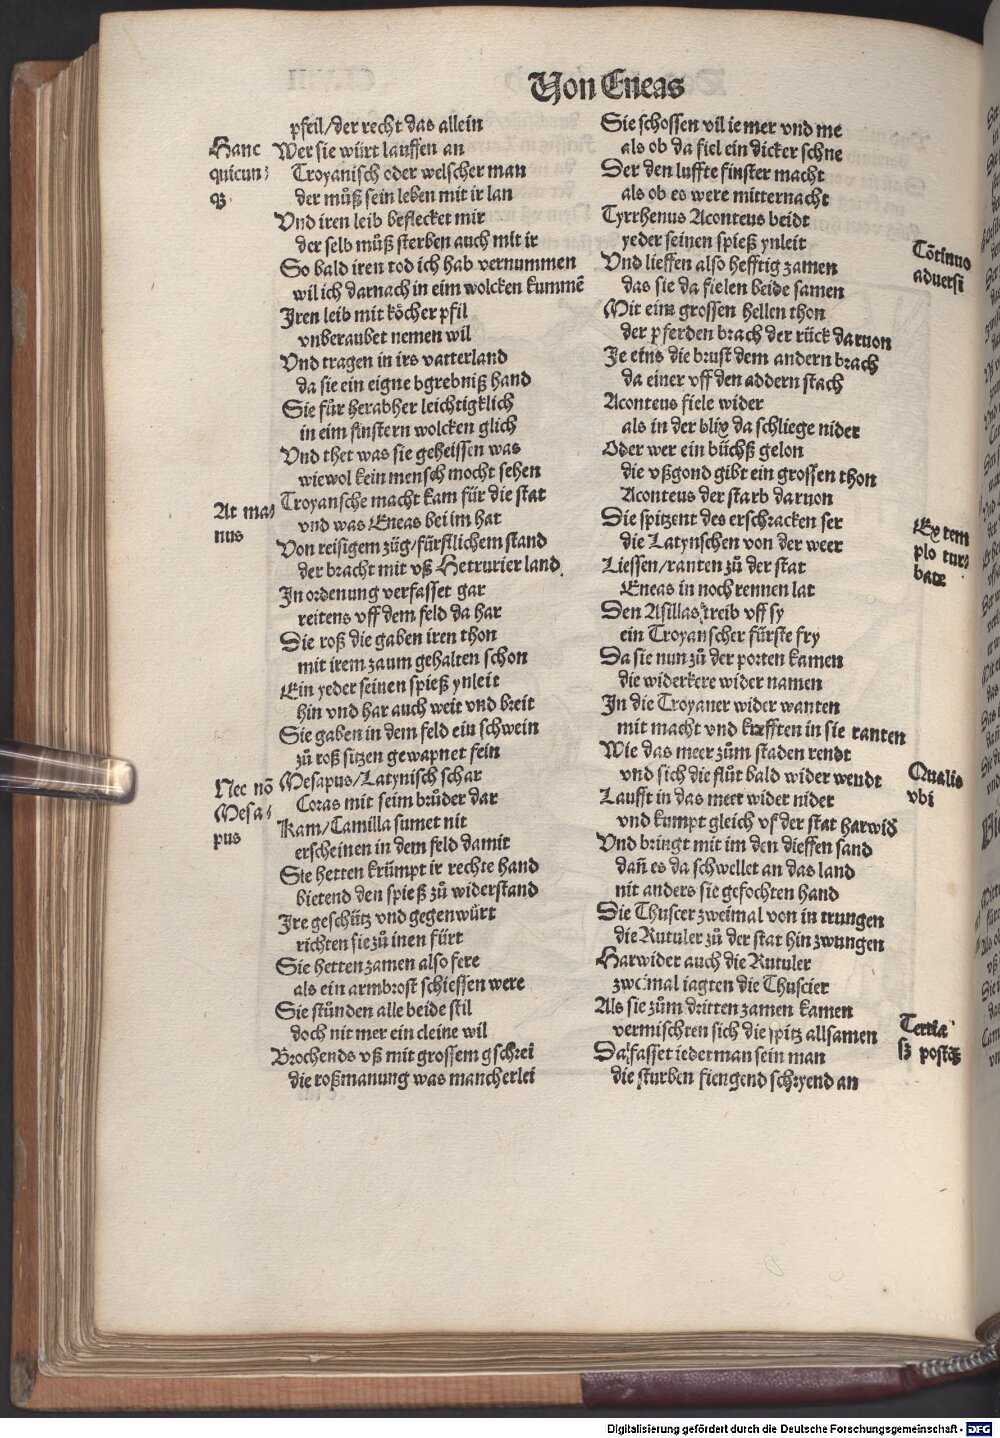 Von Eneas
pfeil/der recht das allein
Hanc
quicun⸗
Wer sie würt lauffen an
Troyanisch oder welscher man
der můß sein leben mit ir lan
Vnd iren leib beflecket mir
der selb můß sterben auch mit ir
So bald iren tod ich hab vernummen
wil ich darnach in eim wolcken kummē
Iren leib mit köcher pfil
vnberaubet nemen wil
Vnd tragen in irs vatterland
da sie ein eigne bgrebniß hand
Sie für herabher leichtigklich
in eim finstern wolcken glich
Vnd thet was sie geheissen was
wiewol kein mensch mocht sehen
At ma⸗
nus
Troyansche macht kam für die stat
vnd was Eneas bei im hat
Von reisigem züg/fürstlichem stand
der bracht mit vß Hetrurier land.
In ordenung verfasset gar
reitens vff dem feld da har
Die roß die gaben iren thon
mit irem zaum gehalten schon
Ein yeder seinen spieß ynleit
hin vnd har auch weit vnd breit
Sie gaben in dem feld ein schwein
zů roß sitzen gewapnet fein
Nec nō
Mesa⸗
pus
Mesapus/Latynisch schar
Coras mit seim brůder dar
Kam/Camilla sumet nit
erscheinen in dem feld damit
Sie hetten krümpt ir rechte hand
bietend den spieß zů widerstand
Ire geschütz vnd gegenwürt
richten sie zů inen fürt
Sie hetten zamen also fere
als ein armbrost schiessen were
Sie stůnden alle beide stil
doch nit mer ein cleine wil
Brochends vß mit grossem gschrei
die roßmanung was mancherlei
Sie schossen vil ie mer vnd me
als ob da fiel ein dicker schne
Der den luffte finster macht
als ob es were mitternacht
Tyrrhenus Aconteus beidt
yeder seinen spieß ynleit
Vnd lieffen also hefftig zamen
das sie da fielen beide samen
Cōtinuo
aduersi
Mit eim grossen hellen thon
der pferden brach der rück daruon
Je eins die brust dem andern brach
da einer vff den addern stach
Aconteus fiele wider
als in der blix da schliege nider
Oder wer ein büchß gelon
die vßgond gibt ein grossen thon
Aconteus der starb daruon
Die spitzent des erschracken ser
die Latynschen von der weer
Liessen/ranten zů der stat
Eneas in noch rennen lat
Ex tem
plo tur⸗
bate
Den Asillas treib vff sy
ein Troyanscher fürste fry
Da sie nun zů der porten kamen
die widerkere wider namen
In die Troyaner wider wanten
mit macht vnd krefften in sie ranten
Wie das meer zům staden rendt
vnd sich die flüt bald wider wendt
Qualis
vbi
Laufft in das meer wider nider
vnd kumpt gleich vf der stat harwid'
Vnd bringt mit im den dieffen sand
dañ es da schwellet an das land
nit anders sie gefochten hand
Die Thuscer zweimal von in trungen
die Rutuler zů der stat hin zwungen
Harwider auch die Rutuler
zweimal iagten die Thuscier
Als sie zům dritten zamen kamen
vermischten sich die spitz allsamen
Tertia
sz postq̄z
Da fasset iederman sein man
die sturben fiengend schryend an
Digitalisierung gefördert durch die Deutsche Forschungsgemeinschaft - DFG